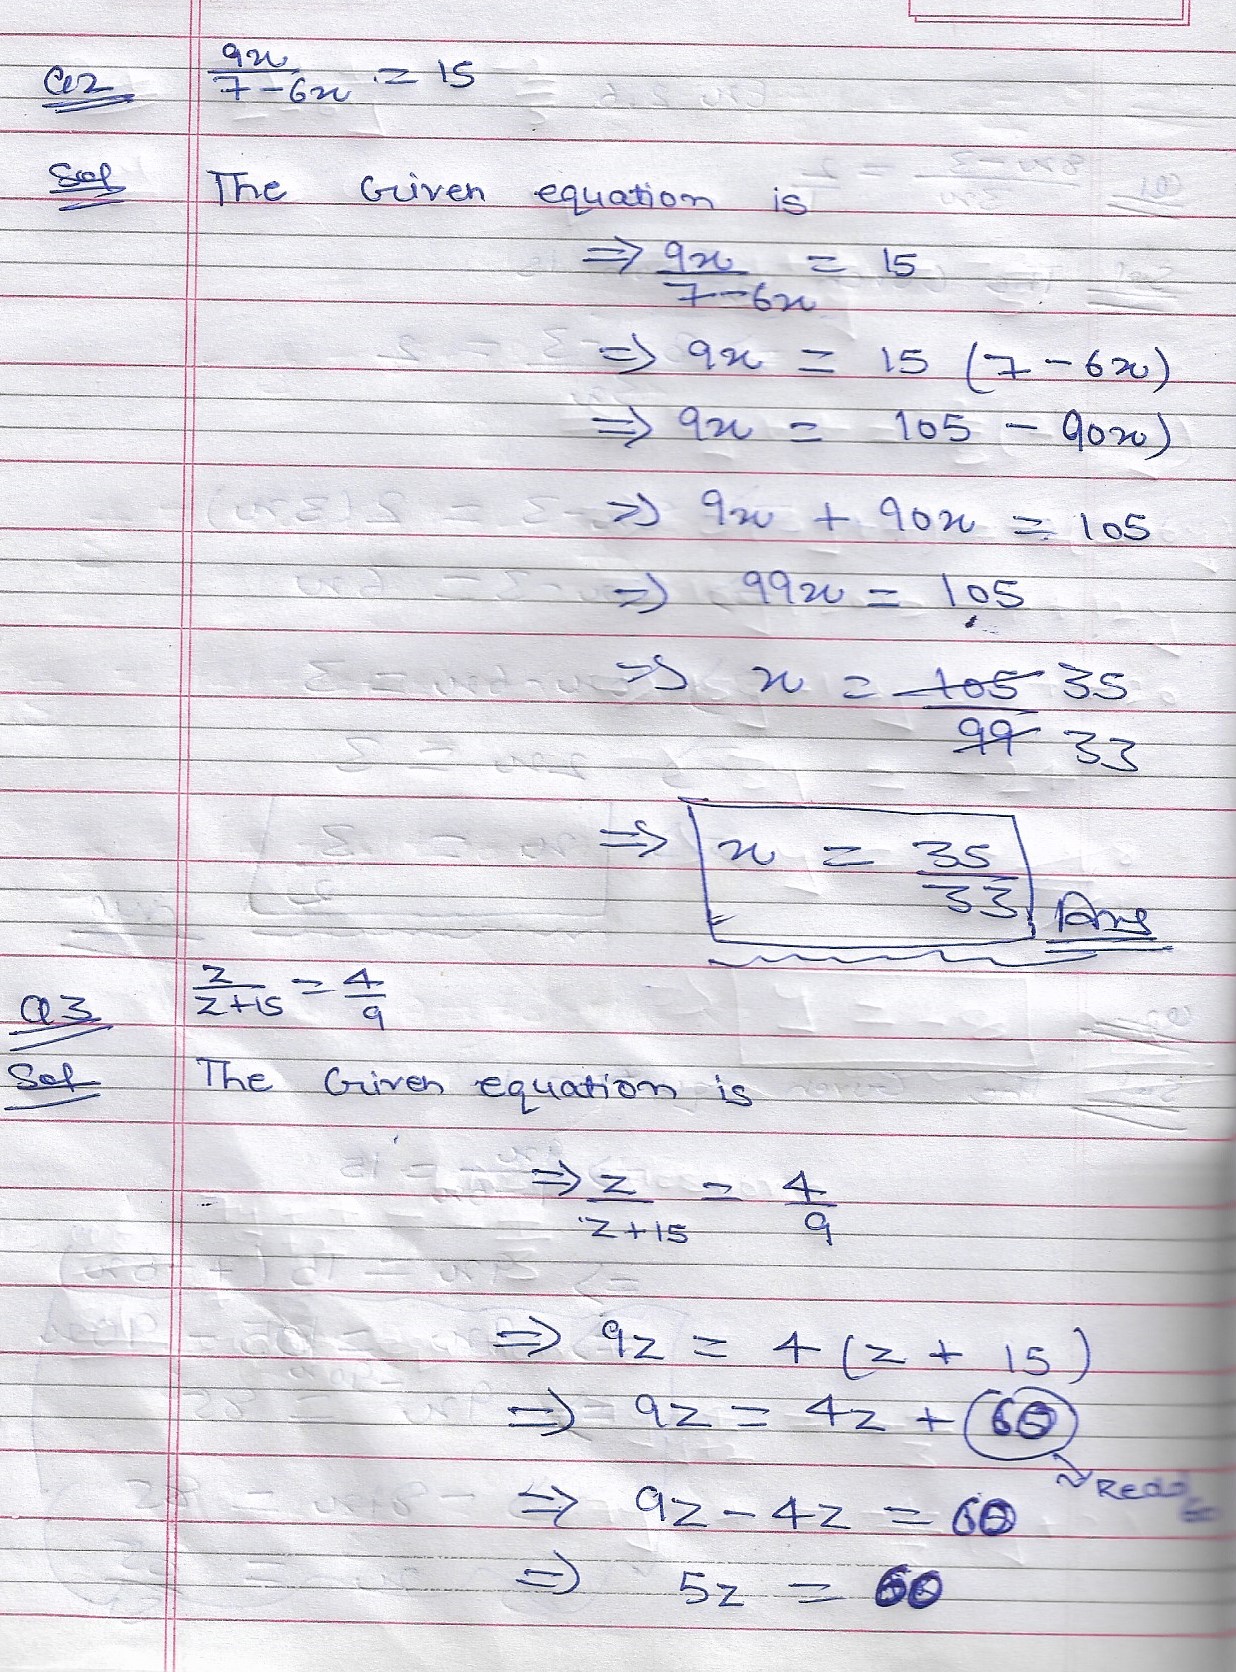 Q2 9x/7-6x = 15
Sol The Given equation is
⇒ 9x/7-6x = 15
⇒ 9x = 15 (7-6x)
⇒ 9x = 105 - 90x)
⇒ 9x + 90x = 105
⇒ 99x = 105
⇒ x = 105/99 35/33
⇒ x = 35/33 Ans
Q3 z/z+15 = 4/9
Sol The Given equation is
⇒ z/z+15 = 4/9
⇒ 9z = 4(z + 15)
⇒ 9z = 4z + 60
Read
⇒ 9z - 4z = 60
⇒ 5z = 60